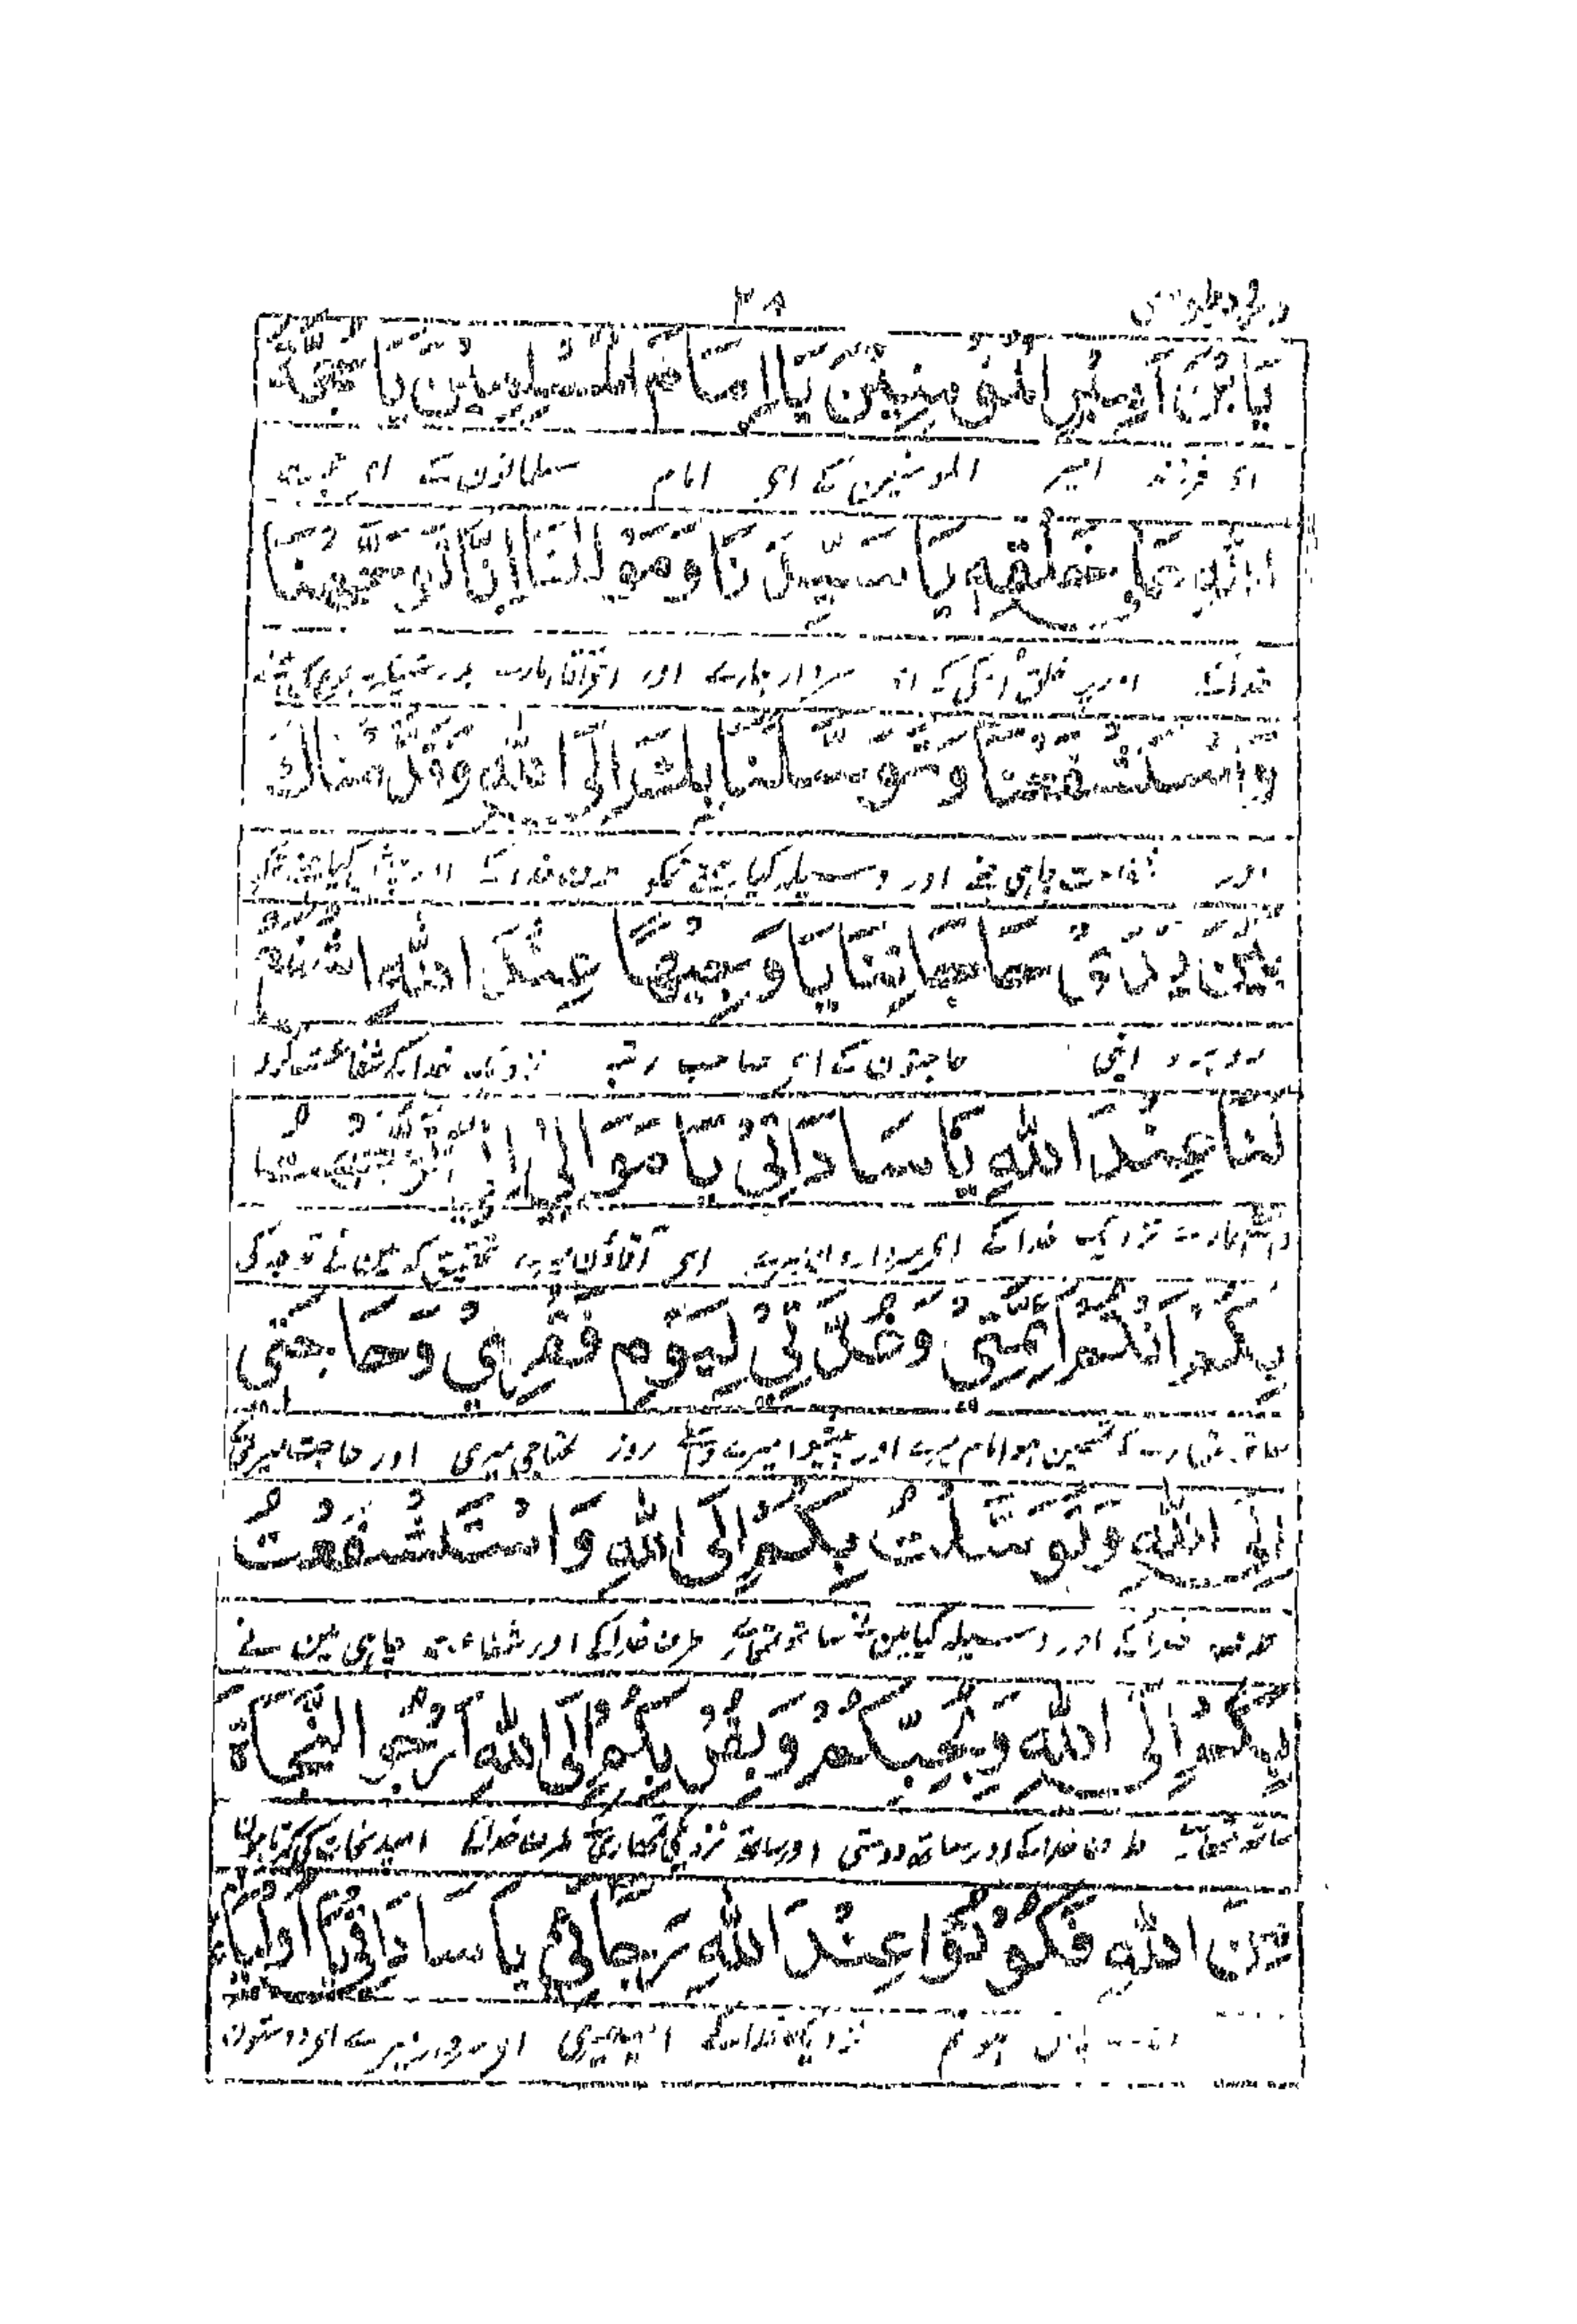 ۳۸
يَا ابْنَ اَمِيْرِ الْمُؤْمِنِيْنَ يَا اِمَامَ الْمُسْلِمِيْنَ يَا حُجَّةَ
ای فرزند امیر المومنین کے ای امام مسلمانون کے ای حجت
اللّٰهِ عَلٰى خَلْقِهٖ يَا سَيِّدَنَا وَمَوْلٰنَا اِنَّا تَوَجَّهْنَا
خدا کے اوپر خلق اسکی کے ای سردار ہمارے اور
وَاسْتَشْفَعْنَا وَتَوَسَّلْنَا بِكَ اِلَى اللّٰهِ وَقَدَّمْنَاكَ
اور شفاعت چاہی ہمنے اور وسیلہ کیا ہمنے تمکو طرف خدا کے اور
بَيْنَ يَدَيْ حَاجَاتِنَا يَا وَجِيْهًا عِنْدَ اللّٰهِ اشْفَعْ
روبرو اپنی حاجتون کے ای صاحب رتبہ نزدیک خدا کے شفاعت کرو
لَنَا عِنْدَ اللّٰهِ يَا سَادَاتِيْ يَا مَوَالِيَّ اِنِّيْ تَوَجَّهْتُ
نزدیک خدا کے ای سرداران میرے ای آقاؤن میرے تحقیق کہ مین نے توجہ کی
بِكُمْ اَنْتُمْ اَئِمَّتِيْ وَعُدَّتِيْ لِيَوْمِ فَقْرِيْ وَحَاجَتِيْ
ساتھ تمہارے کہ تمہین ہو امام میرے اور پیشوا میرے روز محتاجی میری اور حاجت میری
اِلَى اللّٰهِ وَتَوَسَّلْتُ بِكُمْ اِلَى اللّٰهِ وَاسْتَشْفَعْتُ
طرف خدا کے اور وسیلہ کیا مین نے ساتھ تمہارے طرف خدا کے اور شفاعت چاہی مین نے
بِكُمْ اِلَى اللّٰهِ وَبِحُبِّكُمْ وَبِقُرْبِكُمْ اِلَى اللّٰهِ اَرْجُو النَّجَاةَ
ساتھ تمہارے طرف خدا کے اور ساتھ دوستی اور ساتھ نزدیکی تمہاری طرف خدا کے امید نجات کی کرتا ہون
مِنَ اللّٰهِ فَكُوْنُوْا عِنْدَ اللّٰهِ رَجَائِيْ يَا سَادَاتِيْ يَا اَوْلِيَاءَ
ہو تم نزدیک خدا کے امید میری ای سردار میرے ای دوستون